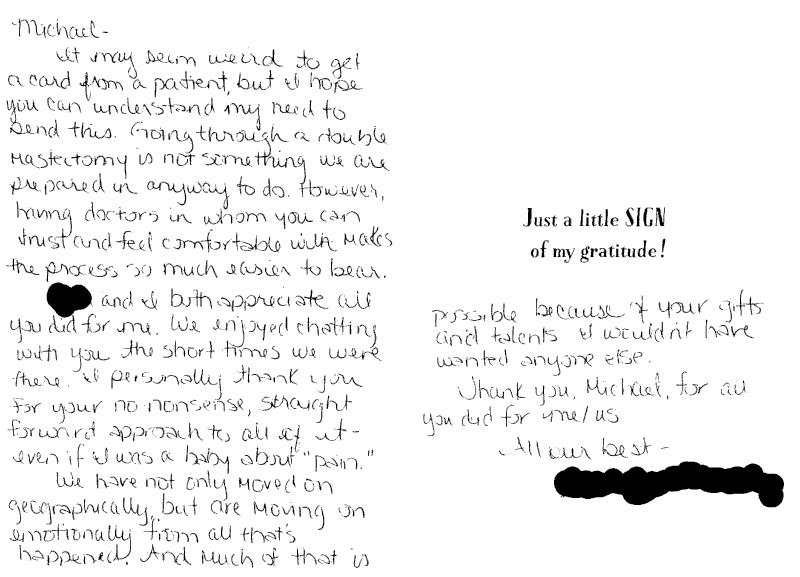 Michael-
It may seem weird to get
a card from a patient, but I hope
you can understand my need to
send this. Going through a double
mastectomy is not something we are
prepared in anyway to do. However,
having doctors in whom you can
trust and feel comfortable with makes
the process so much easier to bear.
and I both appreciate all
you did for me. We enjoyed chatting
with you the short times we were
there. I personally thank you
for your no-nonsense, straight
forward approach to all of it-
even if I was a baby about "pain."
We have not only moved on
geographically, but are moving on
emotionally from all that's
happened. And much of that is
Just a little SIGN
of my gratitude!
possible because of your gifts
and talents I wouldn't have
wanted anyone else.
Thank you, Michael, for all
you did for me/us
All our best-